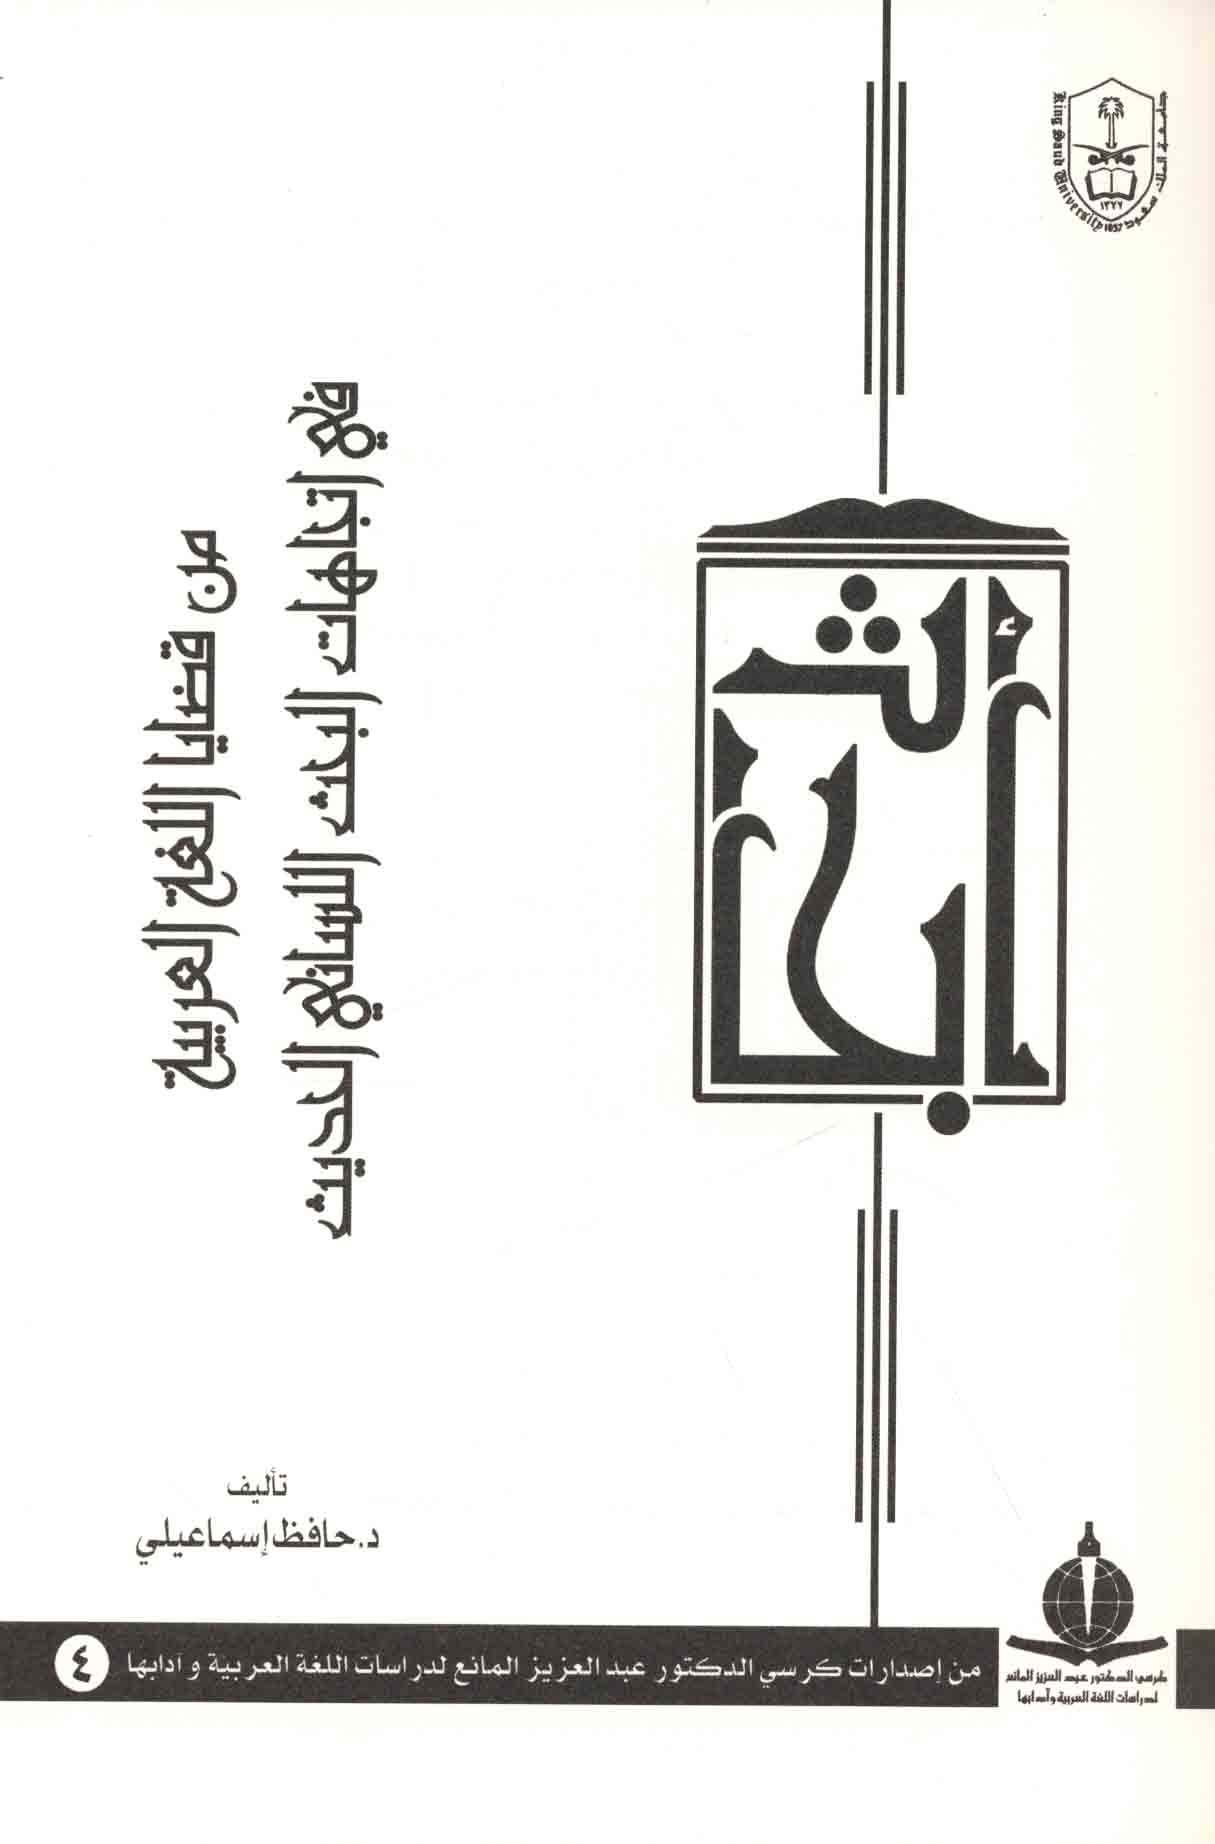 جامعة الملك سعود
King Saud University 1957
١٣٧٧
أبحاث
من قضايا اللغة العربية
في اتجاهات البحث اللساني الحديث
تأليف
د.حافظ إسماعيلي
كرسي الدكتور عبد العزيز المانع
لدراسات اللغة العربية وآدابها
من إصدارات كرسي الدكتور عبد العزيز المانع لدراسات اللغة العربية و آدابها ٤